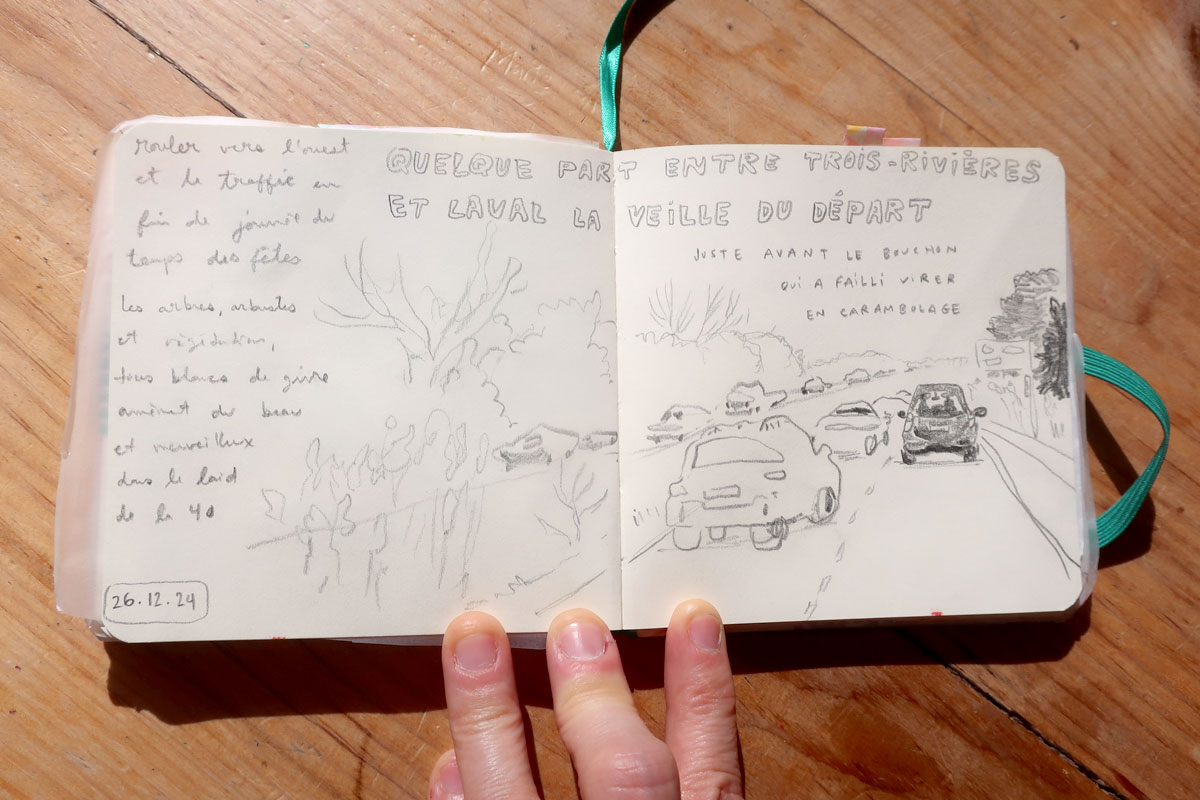 rouler vers l'ouest
et le traffic en
fin de journée du
temps des fêtes
les arbres, arbustes
et végétation,
tous blancs de givre
amènent du beau
et merveilleux
dans le laid
de la 40
26.12.24
QUELQUE PART ENTRE TROIS-RIVIÈRES
ET LAVAL LA VEILLE DU DÉPART
JUSTE AVANT LE BOUCHON
QUI A FAILLI VIRER
EN CARAMBOLAGE